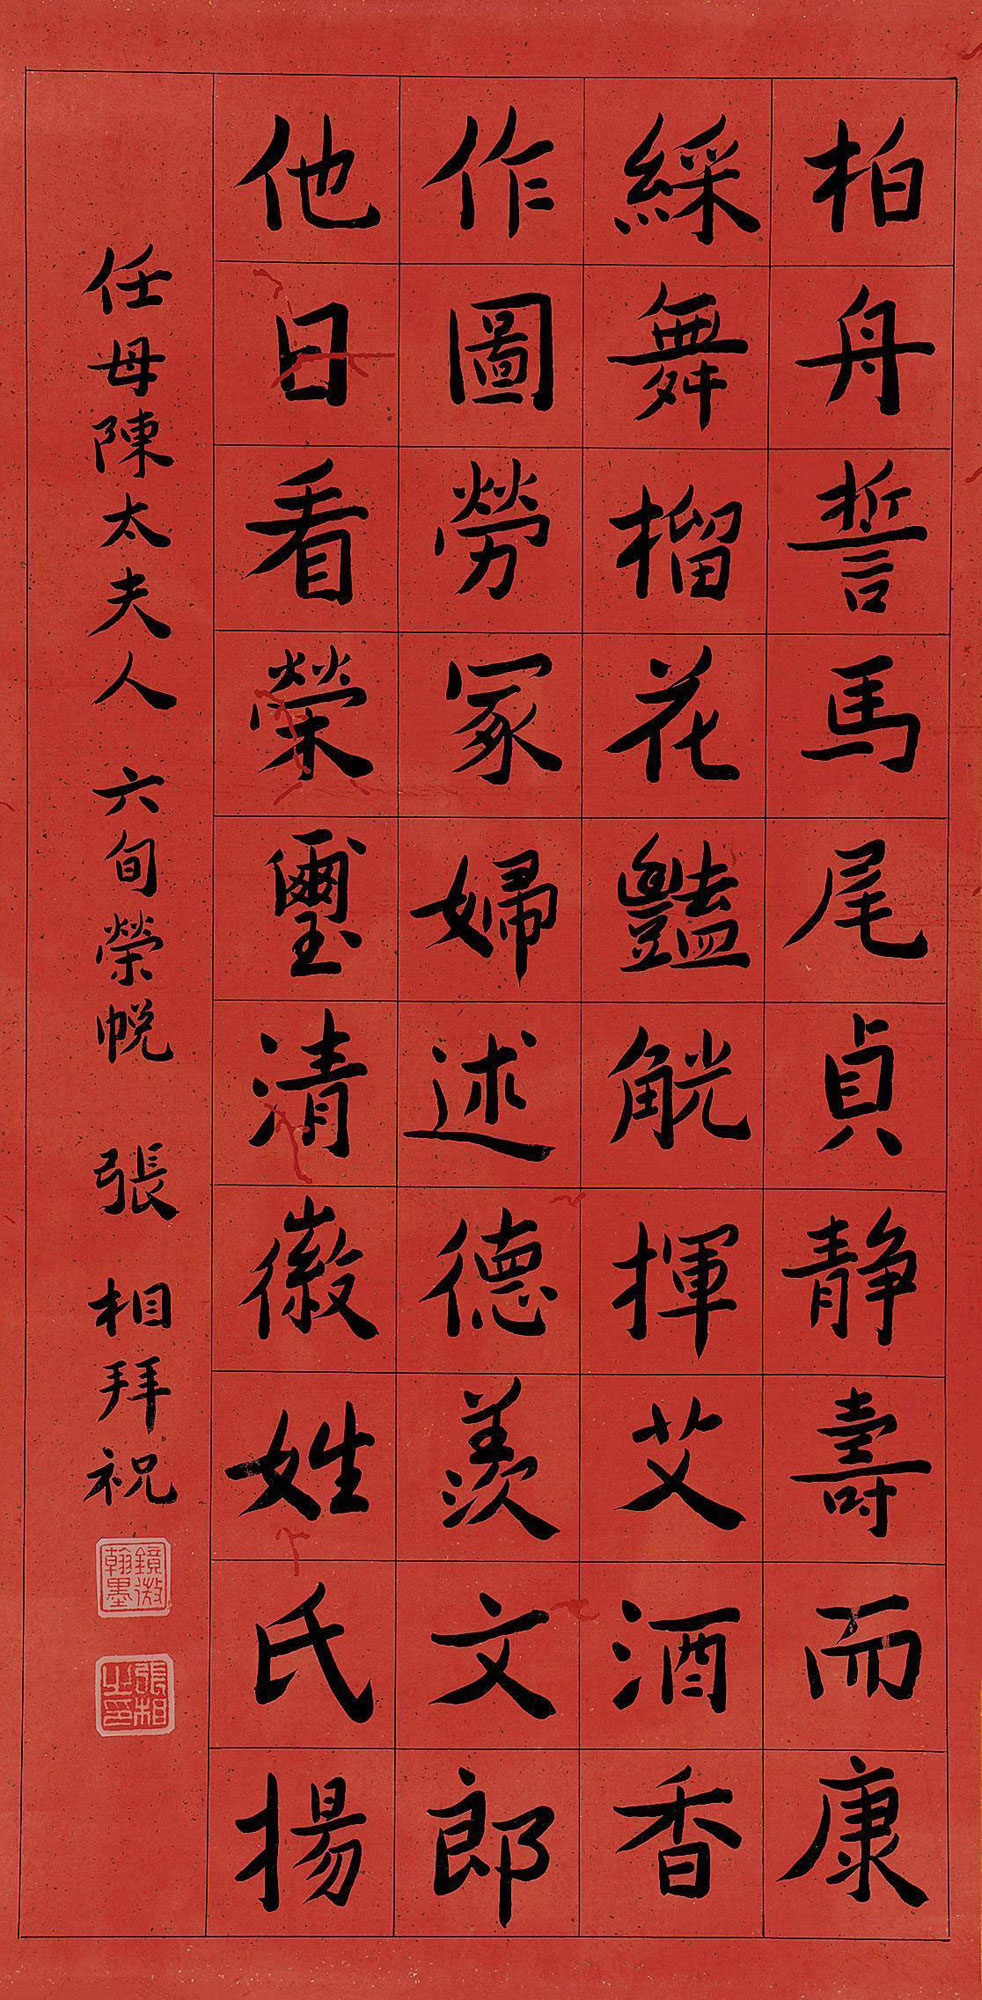 柏舟誓馬尾貞静壽而康
綵舞榴花豔觥揮艾酒香
作圖勞冢婦述德羨文郎
他日看榮璽清徽姓氏揚
任母陳太夫人 六旬榮帨 張 相拜祝
鏡澂翰墨
張相之印